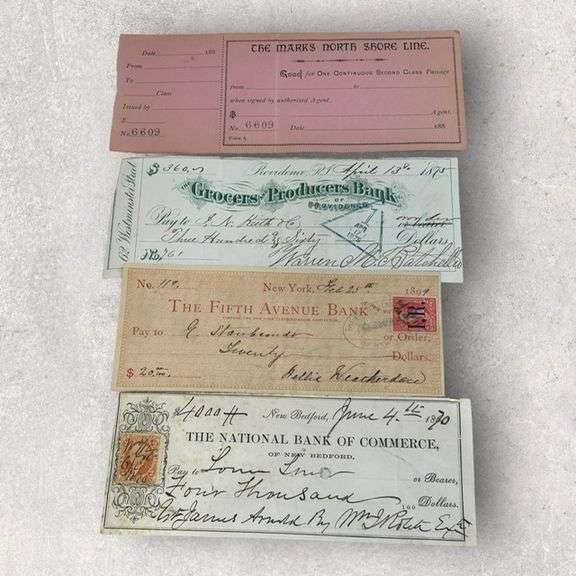 Date 188
THE MARKS NORTH SHORE LINE.
From
Good for One Continuous Second Class Passage
To
from to
Class
when signed by authorized Agent.
Issued by
$ Agent.
$
No. 6609
No. 6609 Date 188
$360.00 Providence, R.I. April 13th 1875
62 Westminster Street
The Grocers and Producers Bank
OF PROVIDENCE
Pay to
Three Hundred & Sixty Dollars
No. 761 Warren
No. 118. New York, Feb 25th 1899
THE FIFTH AVENUE BANK
I.R.
Pay to or Order,
Twenty Dollars,
$ 20.00 Hallie
$4000 New Bedford, June 4th 1870
THE NATIONAL BANK OF COMMERCE,
OF NEW BEDFORD,
Pay to or Bearer,
Four Thousand 100 Dollars.
James Arnold By Wm J Rotch